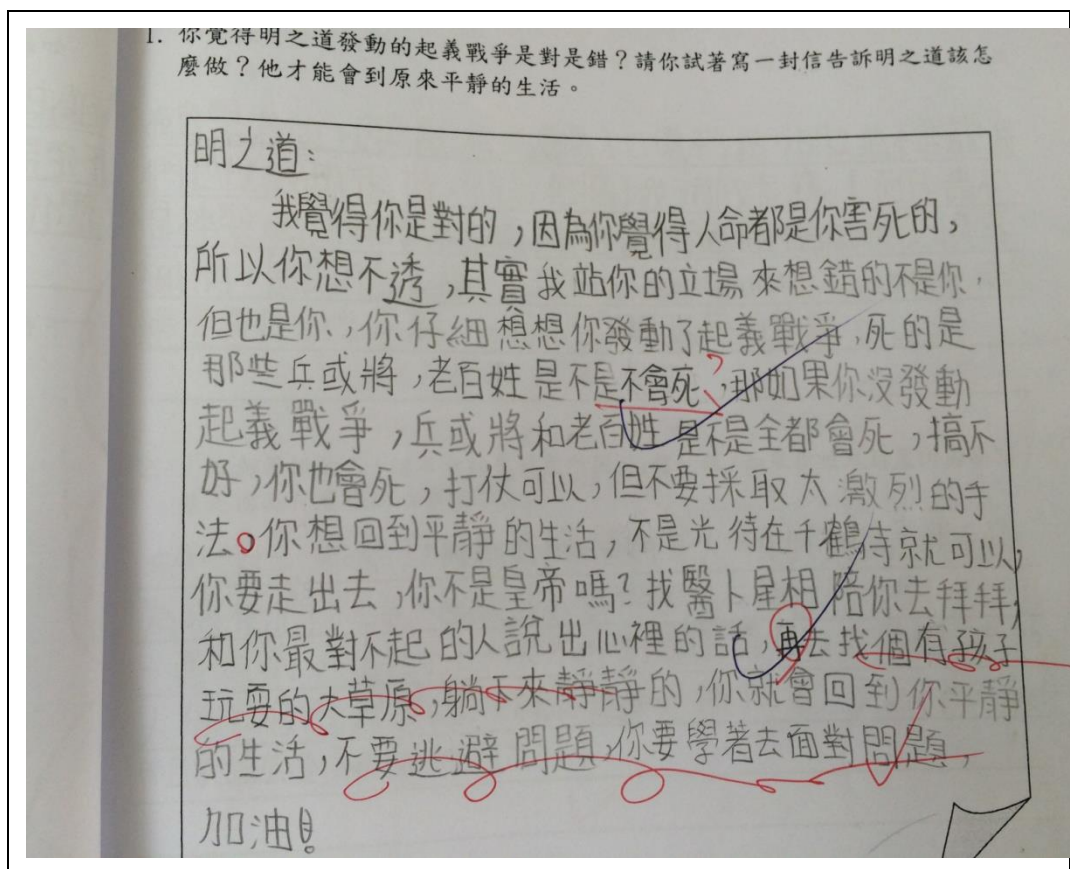 1. 你覺得明之道發動的起義戰爭是對是錯？請你試著寫一封信告訴明之道該怎
麼做？他才能會到原來平靜的生活。
明之道：
我覺得你是對的，因為你覺得人命都是你害死的，
所以你想不透，其實我站你的立場來想錯的不是你，
但也是你，你仔細想想你發動了起義戰爭，死的是
那些兵或將，老百姓是不是不會死？，那如果你沒發動
起義戰爭，兵或將和老百姓是不是全都會死，搞不
好，你也會死，打仗可以，但不要採取太激烈的手
法。你想回到平靜的生活，不是光待在千鶴寺就可以，
你要走出去，你不是皇帝嗎？找醫卜星相陪你去拜拜，
和你最對不起的人說出心裡的話，再去找個有孩子
玩耍的大草原，躺下來靜靜的，你就會回到你平靜
的生活，不要逃避問題，你要學著去面對問題，
加油！